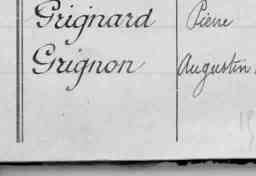 Grignard Pierre
Grignon Augustin